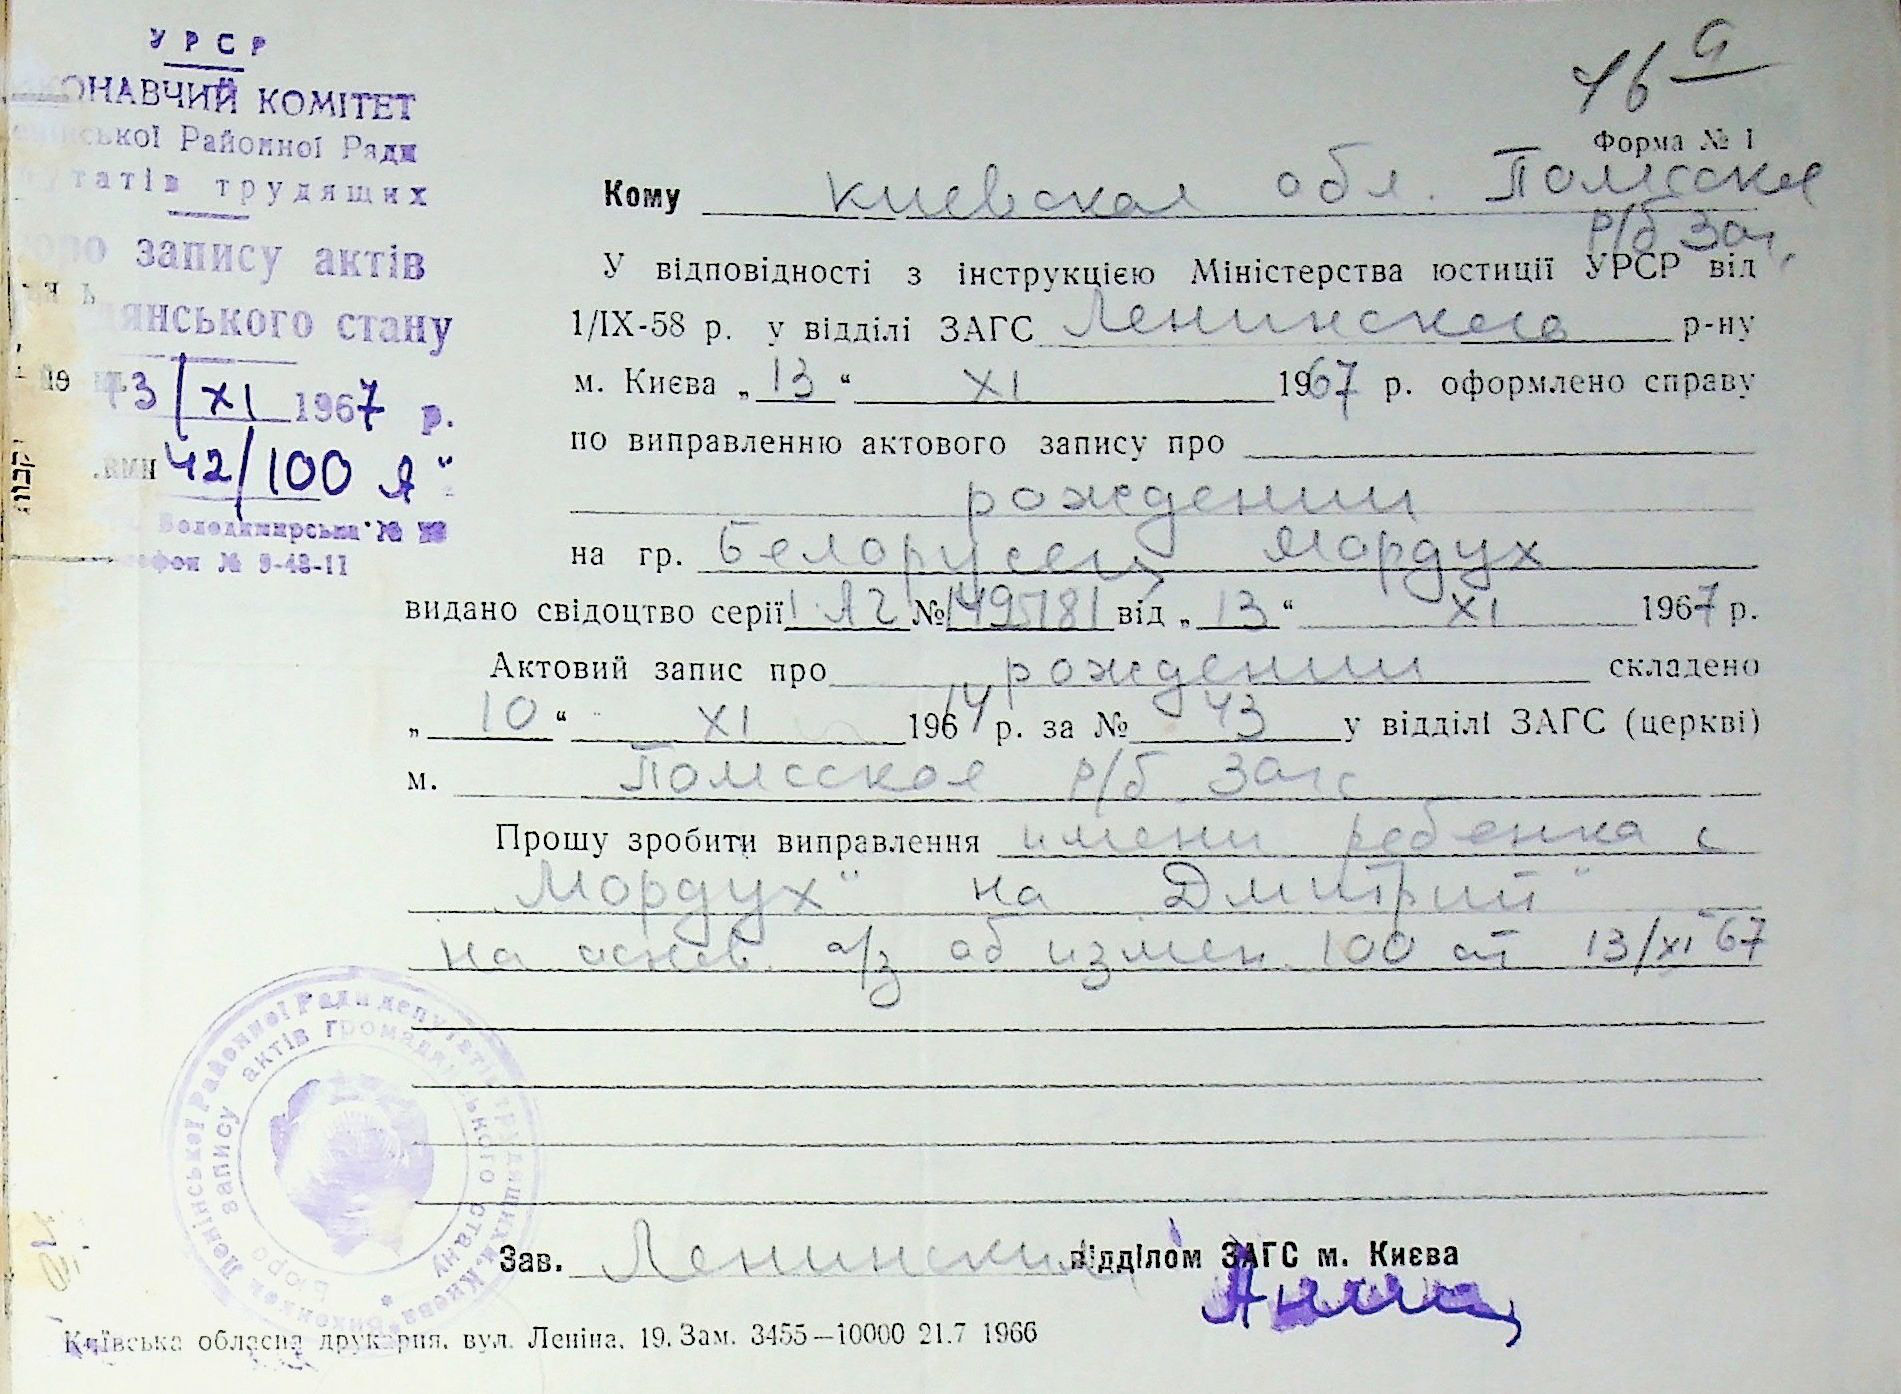 УРСР
КОНАВЧИЙ КОМІТЕТ
нської Районної Ради
татів трудящих
запису актів
дянського стану
13/XI 1967 р.
42/100 А"
Володимирська №
№ 5-48-11
46 а
Форма № 1
Кому Киевская обл.
р/б Загс
У відповідності з інструкцією Міністерства юстиції УРСР від
1/ІХ-58 р. у відділі ЗАГС Ленинского р-ну
м. Києва „13“ XI 1967 р. оформлено справу
по виправленню актового запису про
рождении
на гр. Белорусец Мордух
видано свідоцтво серії № 1495181 від „13“ XI 1967 р.
Актовий запис про рождении складено
„10“ XI 1964 р. за № 43 у відділі ЗАГС (церкві)
м. р/б Загс
Прошу зробити виправлення имени ребенка с
Мордух" на Дмитрий"
на основ. а/з об измен. 100 от 13/XI 67
Зав. Ленинским відділом ЗАГС м. Києва
Київська обласна друкарня, вул. Леніна, 19. Зам. 3455—10000 21.7 1966